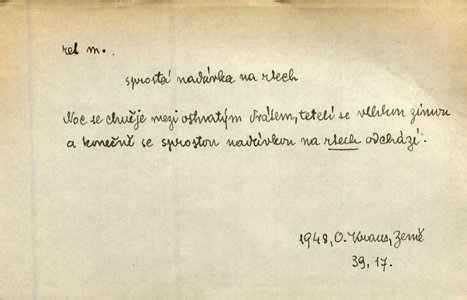 ret m.
sprostá nadávka na rtech
Noc se chvěje mezi ostnatým drátem, tetelí se vlhkou zimou
a konečně se sprostou nadávkou na rtech odchází.
1948, O. Kraus, Země
39, 17.